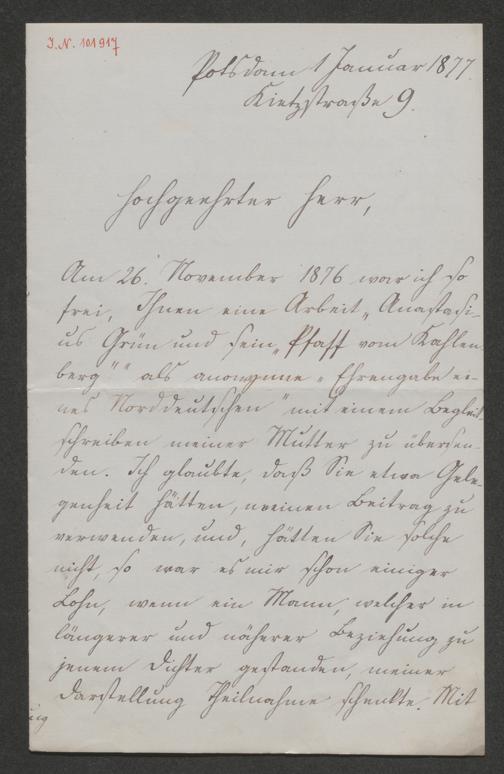 I.N. 101917
Potsdam 1 Januar 1877.
Kietzstraße 9.
Hochgeehrter Herr,
Am 26. November 1876 war ich so
frei, Ihnen eine Arbeit „Anastasi-
us Grün und sein „Pfaff vom Kahlen
berg"" als anonyme „Ehrengabe ei-
nes Norddeutschen" mit einem Begleit
schreiben meiner Mutter zu übersen-
den. Ich glaubte, daß Sie etwa Gele-
genheit hätten, meinen Beitrag zu
verwenden, und, hätten Sie solche
nicht, so war es mir schon einiger
Lohn, wenn ein Mann, welcher in
längerer und näherer Beziehung zu
jenem Dichter gestanden, meiner
Darstellung Theilnahme schenkte. Mit